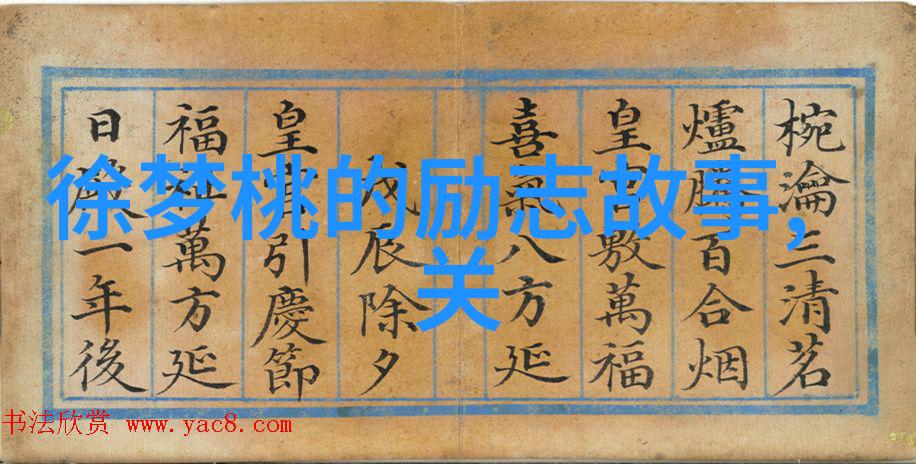 徐梦桃的励志故事,
关
椀瀹三清茗
爐百合烟
皇宮敷萬福
喜氣八方延
戊辰除夕
皇宮引慶節
福萬方延
日一年後
书法欣赏 www.yac8.com